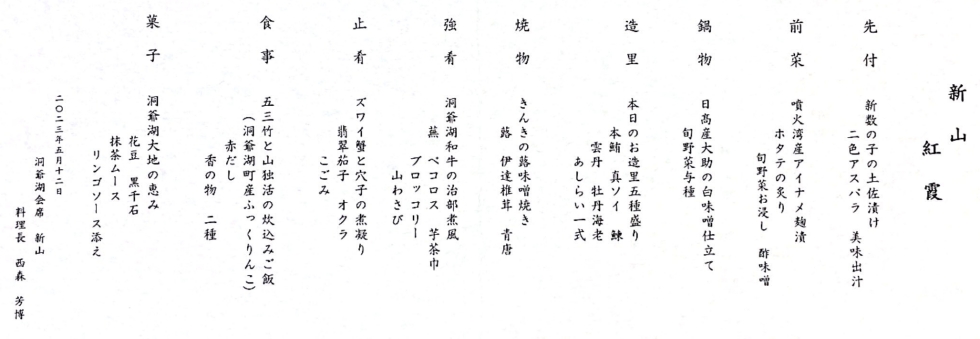 新山
紅霞
先付
新数の子の土佐漬け
二色アスパラ 美味出汁
前菜
噴火湾産アイナメ麹漬
ホタテの炙り
旬野菜お浸し 酢味噌
鍋物
日高産大助の白味噌仕立て
旬野菜与種
造里
本日のお造里五種盛り
本鮪 真ソイ 鰊
雲丹 牡丹海老
あしらい一式
焼物
きんきの蕗味噌焼き
蕗 伊達椎茸 青唐
強肴
洞爺湖和牛の治部煮風
蕪 ペコロス 芋茶巾
ブロッコリー
山わさび
止肴
ズワイ蟹と穴子の煮凝り
翡翠茄子 オクラ
こごみ
食事
五三竹と山独活の炊込みご飯
(洞爺湖町産ふっくりんこ)
赤だし
香の物 二種
菓子
洞爺湖大地の恵み
花豆 黒千石
抹茶ムース
リンゴソース添え
二〇二三年五月十二日
洞爺湖会席 新山
料理長 西森 芳博